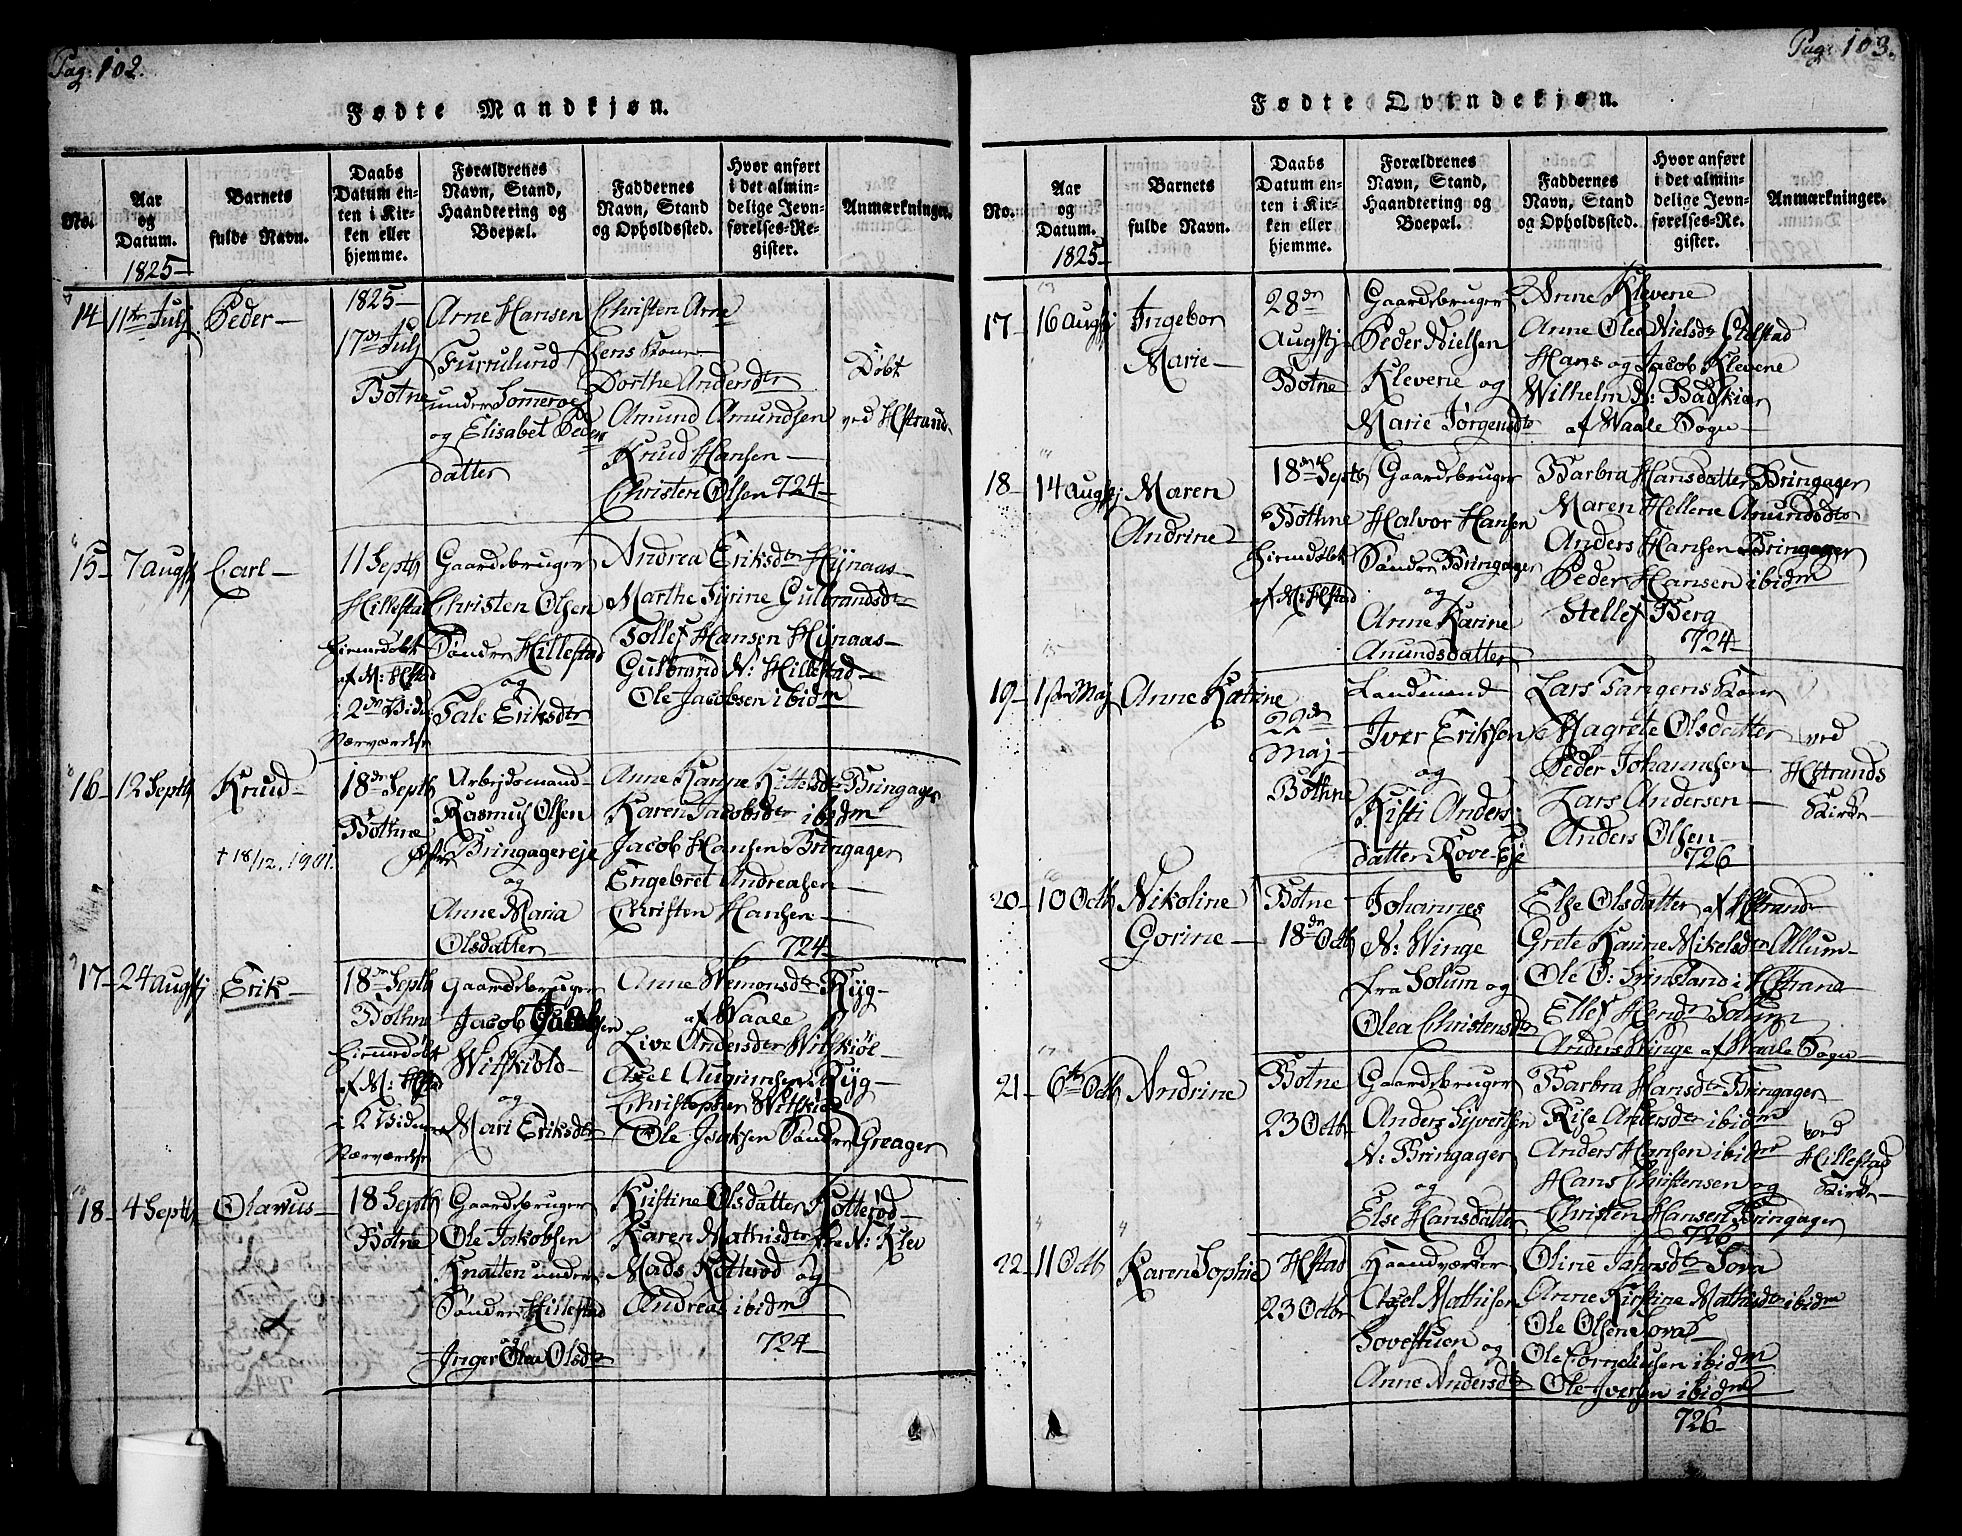 Pag: 102.
Fødte Mandkjøn.
No.
Aar og Datum.
1825
Barnets fulde Navn.
Daabs Datum enten i Kirken eller hjemme.
Forældrenes Navn, Stand, Haandtering og Boepæl.
Faddernes Navn, Stand og Opholdssted.
Hvor anført i det almindelige Jevnførelses-Register.
Anmærkninger.
14
11te Julj
Peder
1825
17de Julj
Botne
Arne Hansen
Furrulund
under Sommeroe
og Elisabet Peders
datter
Christen Arne
Dorthe Andersdtr
Amund Amundsen
Knud Hansen
Christen Olsen 724
Døbt
ved Hstrand
15
7 Augsj
Carl
11 Septb
Hillestad
Hiemedøbt
af M: Hstad
i 2de Vidners
Nærværelse
Gaardebruger
Christen Olsen
Søndre Hillestad
og
Tale Eriksdtr
Andrea Eriksdtr Hynaas
Marthe Syrine Gulbrandsdtr
Tollef Hansen Hynaas
Gulbrand N: Hillestad
Ole Jacobsen ibidm
16
12 Septb
Knud
† 18/12. 1901.
18de Septb
Bothne
Arbejdsmand
Rasmus Olsen
Bringagereje
og
Anne Maria
Olsdatter
Anne Karine Kittelsdtr Bringager
Karen Jacobsdtr ibidm
Jacob Hansen Bringager
Engebret Andreasen
Christen Hansen
724
17
24 Augsj
Erik
18de Septb
Bothne
Hiemedøbt
af M: Hstad
i 2 Vidners
Nærværelse
Gaardebruger
Jacob
Witskiold
og
Mari Eriksdtr
Anne Wemonsdtr Ryg
af Waale
Live Andersdtr Witskiøl
Axel Augrimsen Ryg
Christopher Witskiøl
Ole Isaksen Søndre Greager
18
4 Septb
Olavus
18 Septb
Botne
Gaardebruger
Ole Jakobsen
Knatten under
Søndre Hillestad
og
Inger Olea Olsdtr
Kristine Olsdatter Kotterød
Karen Mathisdtr fra N: Klev
Mads Kotterød og
Andreas ibidm
724
Pag: 103.
Fødte Qvindekjøn.
No.
Aar og Datum.
1825
Barnets fulde Navn.
Daabs Datum enten i Kirken eller hjemme.
Forældrenes Navn, Stand, Haandtering og Boepæl.
Faddernes Navn, Stand og Opholdssted.
Hvor anført i det almindelige Jevnførelses-Register.
Anmærkninger.
17
16 Augsj
Ingebor
Marie
28de
Augstj
Botne
Gaardebruger
Peder Nielsen
Klevene og
Marie Jørgensdtr
Anne Klevene
Anne Oles Nielsdtr
Hans og Jacob Klevene
Wilhelm N: Badskiær
af Waale Sogn
18
14 Augstj
Maren
Andrine
18de Septb
Bothne
Hiemedøbt
af M: Hstad
Gaardebruger
Halvor Hansen
Søndre Bringager
og
Anne Karine
Anundsdatter
Barbra Hansdatter Bringager
Maren Hellene Anundsdtr
Anders Hansen Bringager
Peder Hansen ibidm
Stellef Berg
724
19
1ste Maj
Anne Katrine
22de
Maj
Bothne
Landmand
Iver Eriksen
og
Kisti Anders
datter Rove-Eje
Lars Tangens Kone
Magrete Olsdatter
Peder Johannesen
Lars Andersen
Anders Olsen
726
ved
Hstrands
Kirke
20
10 Octb
Nikoline
Gorine
Botne
18de Octb
Johannes
N: Winge
fra Solum og
Olea Christensdtr
Else Olsdatter af Hstrand
Grete Karine Mikelsdtr Allum
Ole O: Trinsland i Hstrand
Ellef Hendr Solum
Anders Winge af Waale Sogn
21
6te Octb
Andrine
Botne
23 Octb
Gaardebruger
Anders Syversen
N: Bringager
og
Else Hansdatter
Barbra Hansdtr Bringager
Rise Andersdtr ibidm
Anders Hansen ibidm
Hans Christensen og
Christen Hansen Bringager
726
ved
Hillestad
Kirke
22
11 Octb
Karen Sophie
Hstad
23 Octbr
Haandværker
Axel Mathisen
Sovestuen og
Anne Andersdtr
Oline Jahnsdtr Sora
Anne Kirstine Mathisdtr ibidm
Ole Olsen Sora
Ole Corneliusen ibidm
Ole Iversen ibidm
726